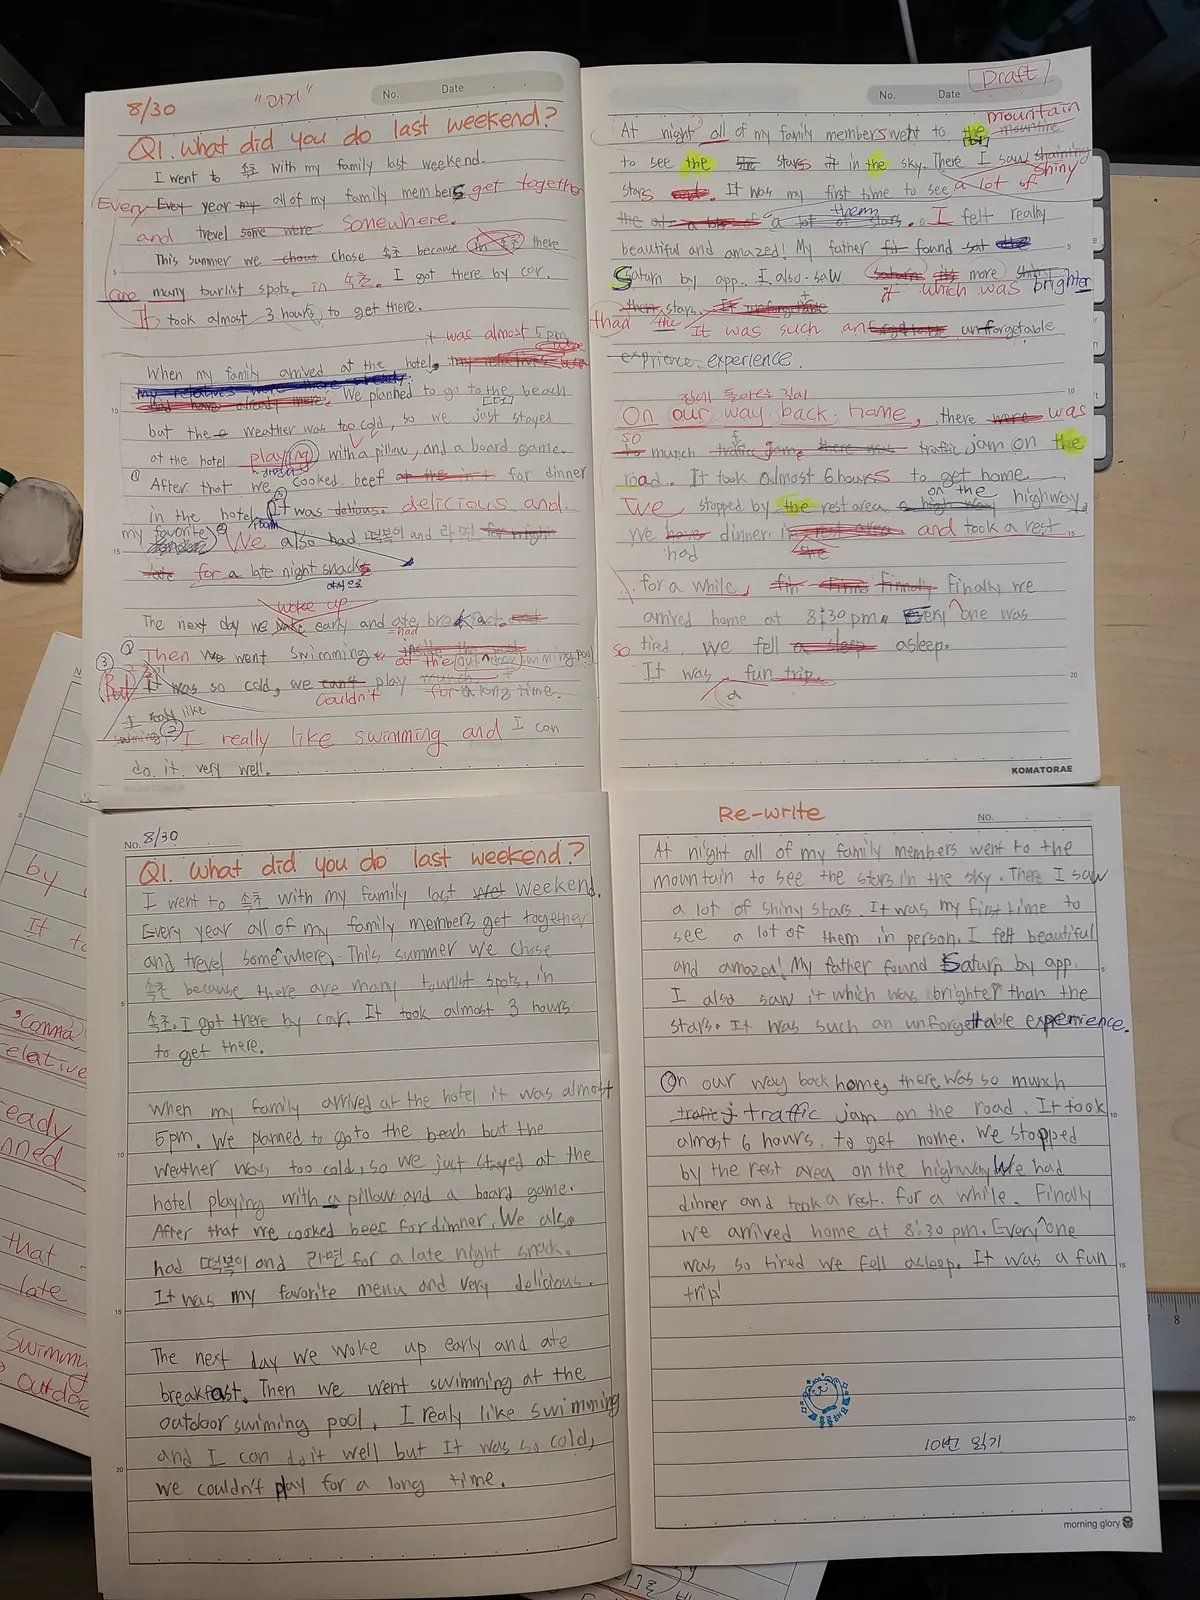 8/30
"과거"
No.
Date
Q1. What did you do last weekend?
I went to 속초 with my family last weekend.
Every year all of my family members get together
and trevel somewhere.
This summer we chose 속초 because there
are many tourlist spots, in 속초. I got there by car.
It took almost 3 hours to get there.
it was almost 5pm
When my family arrived at the hotel,
We planned to go to the beach
but the weather was too cold, so we just stayed
at the hotel playing with a pillow, and a board game.
After that we cooked beef for dinner
in the hotel. It was delicious and
my favorite
We also had 떡볶이 and 라면
for a late night snack
야식으로
The next day we woke up early and ate breakfast.
Then we went swimming at the outdoor swimming pool
But it was so cold, we couldn't play for a long time.
I realy like
I really like swimming and I can
do it very well.
Draft
No.
Date
At night all of my family members went to the mountain
to see the stars in the sky. There I saw shiny
stars. It was my first time to see a lot of
them. I felt really
beautiful and amazed! My father found
Saturn by app. I also saw
it which was brighter
than the stars. It was such an unforgetable
experience.
집에 돌아오는 길에
On our way back home, there was
so munch traffic jam on the
road. It took almost 6 hours to get home.
We stopped by the rest area on the highway.
We had dinner and took a rest
for a while, Finally we
arrived home at 8:30 pm. Every one was
so tired, we fell asleep.
It was a fun trip.
KOMATORAE
No. 8/30
Q1. What did you do last weekend?
I went to 속초 with my family last weekend.
Every year all of my family members get together
and trevel somewhere. This summer we chose
속초 because there are many tourlist spots, in
속초. I got there by car. It took almost 3 hours
to get there.
When my family arrived at the hotel it was almost
5pm. We planned to go to the beach but the
weather was too cold, so we just stayed at the
hotel playing with a pillow and a board game.
After that we cooked beef for dinner. We also
had 떡볶이 and 라면 for a late night snack.
It was my favorite menu and very delicious.
The next day we woke up early and ate
breakfast. Then we went swimming at the
outdoor swiming pool. I realy like swimming
and I can do it well but It was so cold,
we couldn't play for a long time.
Re-write
No.
At night all of my family members went to the
mountain to see the stars in the sky. There I saw
a lot of shiny stars. It was my first time to
see a lot of them in person. I felt beautiful
and amazed! My father found Saturn by app.
I also saw it which was brighter than the
stars. It was such an unforgettable experience.
On our way back home, there was so munch
traffic jam on the road. It took
almost 6 hours to get home. We stopped
by the rest area on the highway We had
dinner and took a rest. for a while. Finally
we arrived home at 8:30 pm. Every one
was so tired we fell asleep. It was a fun
trip!
10번 읽기
morning glory
by
comma
relative
that
late
swimming
outdoor
8